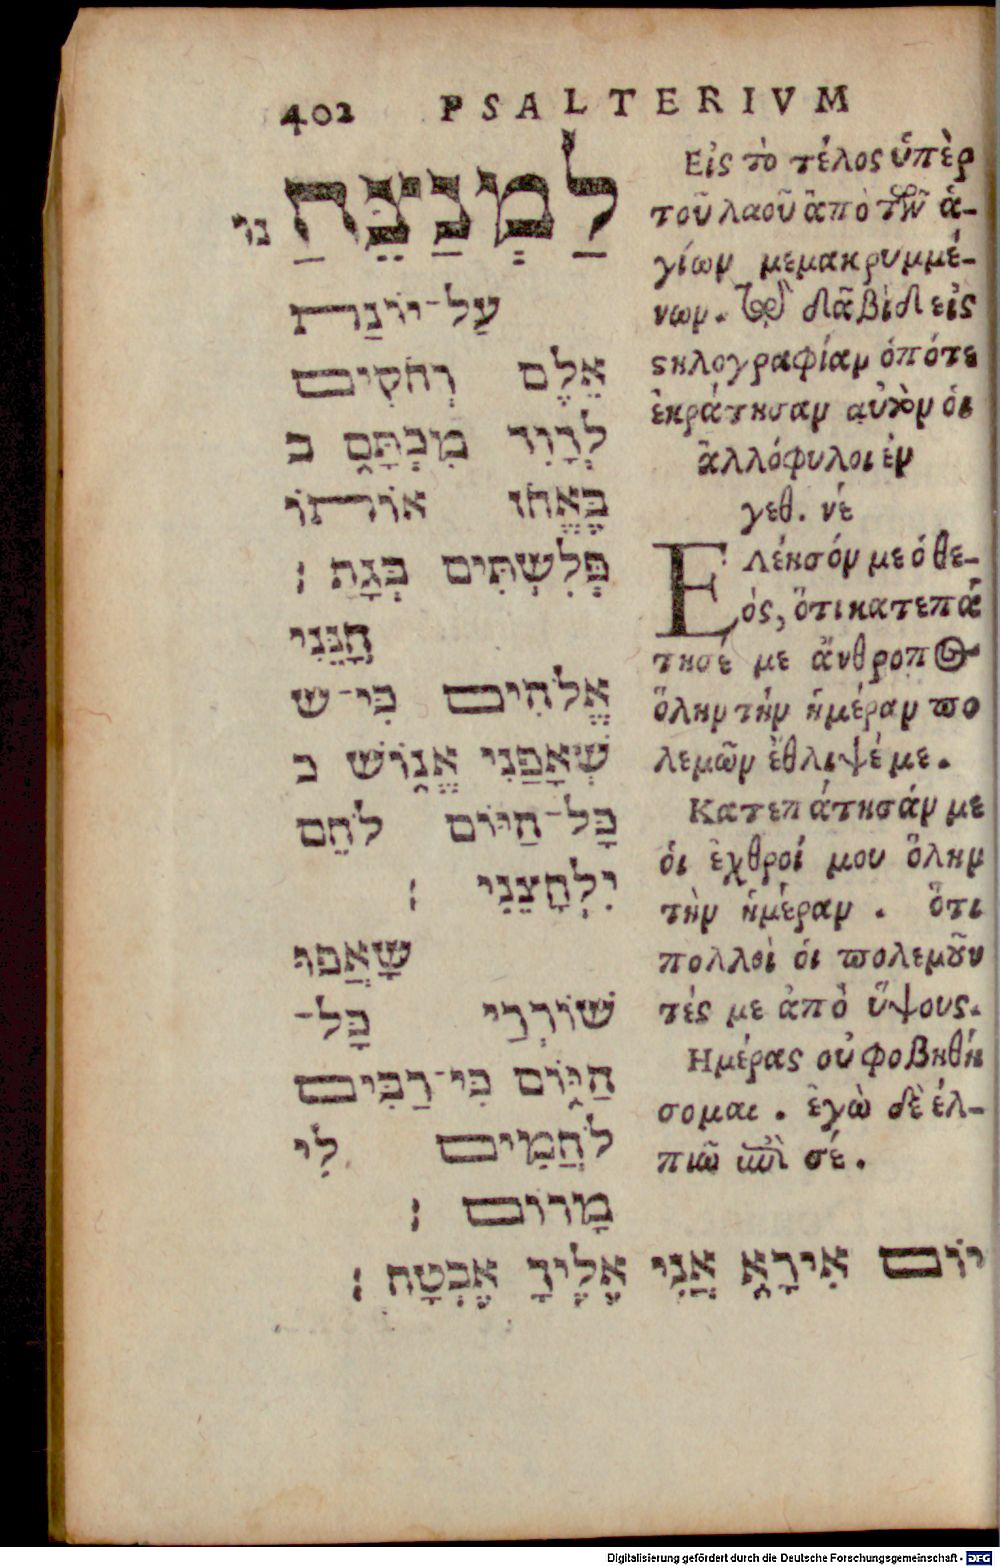 402 PSALTERIVM
לַמְנַצֵּחַ נו
עַל־יוֹנַת
אֵלֶם רְחֹקִים
לְדָוִד מִכְתָּם ב
בֶּאֱחֹז אוֹתוֹ
פְּלִשְׁתִּים בְּגַת׃
חָנֵּנִי
אֱלֹהִים כִּי־ש
שְׁאָפַנִי אֱנוֹשׁ כ
כָּל־הַיּוֹם לֹחֵם
יִלְחָצֵנִי׃
שָׁאֲפוּ
שׁוֹרְרַי כָּל־
הַיּוֹם כִּי־רַבִּים
לֹחֲמִים לִי
מָרוֹם׃
יוֹם אִירָא אֲנִי אֵלֶיךָ אֶבְטָח׃
Εἰς τὸ τέλος ὑπὲρ
τοῦ λαοῦ ἀπὸ τῶν ἁ-
γίων μεμακρυμμέ-
νων. τῷ δαβὶδ εἰς
ςηλογραφίαν ὁπότε
ἐκράτησαν αὐτὸν ὁι
ἀλλόφυλοι ἐν
γεθ. νέ
ΕΛέησόν με ὁ θε-
ός, ὅτι κατεπά
τησέ με ἄνθρωπος
ὅλην τὴν ἡμέραν πο
λεμῶν ἔθλιψέ με.
Κατεπάτησάν με
ὁι ἐχθροί μου ὅλην
τὴν ἡμέραν. ὅτι
πολλοὶ ὁι πολεμοῦν
τές με ἀπὸ ὕψους.
Ημέρας οὐ φοβηθή
σομαι. ἐγὼ δὲ ἐλ-
πιῶ ἐπὶ σέ.
Digitalisierung gefördert durch die Deutsche Forschungsgemeinschaft - DFG